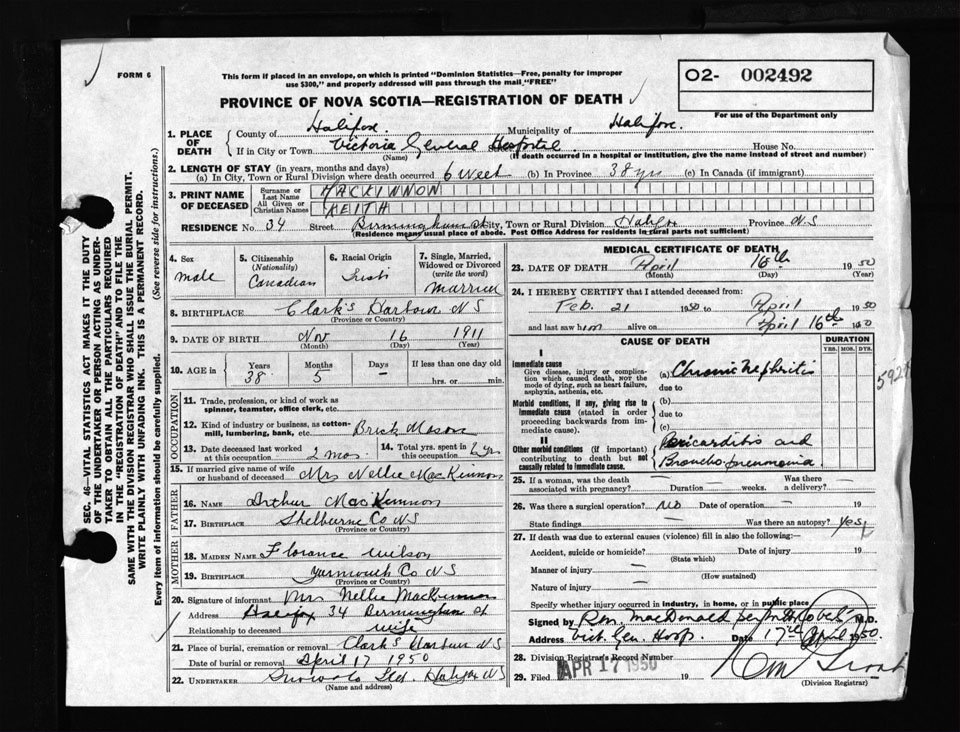 FORM 6
This form if placed in an envelope, on which is printed "Dominion Statistics—Free, penalty for improper
use $300," and properly addressed will pass through the mail "FREE"
O2- 002492
For use of the Department only
PROVINCE OF NOVA SCOTIA—REGISTRATION OF DEATH
1. PLACE OF DEATH
County of Halifax. Municipality of Halifax.
If in City or Town Victoria General Hospital House No.
(Name) (If death occurred in a hospital or institution, give the name instead of street and number)
2. LENGTH OF STAY (in years, months and days)
(a) In City, Town or Rural Division where death occurred 6 week (b) In Province 38 yrs (c) In Canada (if immigrant)
3. PRINT NAME OF DECEASED
Surname or Last Name MACKINNON
All Given or Christian Names KEITH
RESIDENCE No. 34 Street Birmingham St City, Town or Rural Division Halifax Province N.S
(Residence means usual place of abode. Post Office Address for residents in rural parts not sufficient)
4. Sex male
5. Citizenship (Nationality) Canadian
6. Racial Origin Irish
7. Single, Married, Widowed or Divorced (write the word) Married
8. BIRTHPLACE Clark's Harbour N S
(Province or Country)
9. DATE OF BIRTH Nov 16 1911
(Month) (Day) (Year)
10. AGE in Years 38 Months 5 Days — If less than one day old
hrs. or min.
OCCUPATION
11. Trade, profession, or kind of work as
spinner, teamster, office clerk, etc.
12. Kind of industry or business, as cotton-
mill, lumbering, bank, etc. Brick Mason
13. Date deceased last worked at this occupation 2 mos.
14. Total yrs. spent in this occupation 2 yrs
15. If married give name of wife
or husband of deceased Mrs Nellie MacKinnon
FATHER
16. NAME Arthur MacKinnon
17. BIRTHPLACE Shelburne Co N S
(Province or Country)
MOTHER
18. MAIDEN NAME Florance Wilson
19. BIRTHPLACE Yarmouth Co N S
(Province or Country)
20. Signature of informant Mrs Nellie MacKinnon
Address Halifax 34 Bermingham St
Relationship to deceased wife
21. Place of burial, cremation or removal Clark's Harbour N S
Date of burial or removal April 17 1950
22. UNDERTAKER Snow & Co Ltd. Halifax N S
(Name and address)
MEDICAL CERTIFICATE OF DEATH
23. DATE OF DEATH April 16th 1950
(Month) (Day) (Year)
24. I HEREBY CERTIFY that I attended deceased from:
Feb. 21 1950 to April 1950
and last saw him alive on April 16th 1950
CAUSE OF DEATH
DURATION
YRS. MOS. DYS.
I
Immediate cause
Give disease, injury or complica-
tion which caused death, NOT the
mode of dying, such as heart failure,
asphyxia, asthenia, etc.
(a) Chronic Nephritis
due to
592
Morbid conditions, if any, giving rise to
immediate cause (stated in order
proceeding backwards from im-
mediate cause).
(b)
due to
(c)
II
Other morbid conditions (if important)
contributing to death but not
causally related to immediate cause.
Pericarditis and
Broncho-pneumonia
25. If a woman, was the death
associated with pregnancy? Duration weeks. Was there
a delivery?
26. Was there a surgical operation? No Date of operation — 19
State findings — Was there an autopsy? Yes
27. If death was due to external causes (violence) fill in also the following:—
Accident, suicide or homicide? Date of injury 19
(State which)
Manner of injury —
(How sustained)
Nature of injury —
Specify whether injury occurred in industry, in home, or in public place
Signed by MacDonald M.D.
Address Vict. Gen. Hosp. Date 17th April 1950.
28. Division Registrar's Record Number
29. Filed APR 17 1950 19
(Division Registrar)
SEC. 46—VITAL STATISTICS ACT MAKES IT THE DUTY
OF THE UNDERTAKER OR PERSON ACTING AS UNDER-
TAKER TO OBTAIN ALL THE PARTICULARS REQUIRED
IN THE "REGISTRATION OF DEATH" AND TO FILE THE
SAME WITH THE DIVISION REGISTRAR WHO SHALL ISSUE THE BURIAL PERMIT.
WRITE PLAINLY WITH UNFADING INK. THIS IS A PERMANENT RECORD.
Every item of information should be carefully supplied. (See reverse side for instructions.)